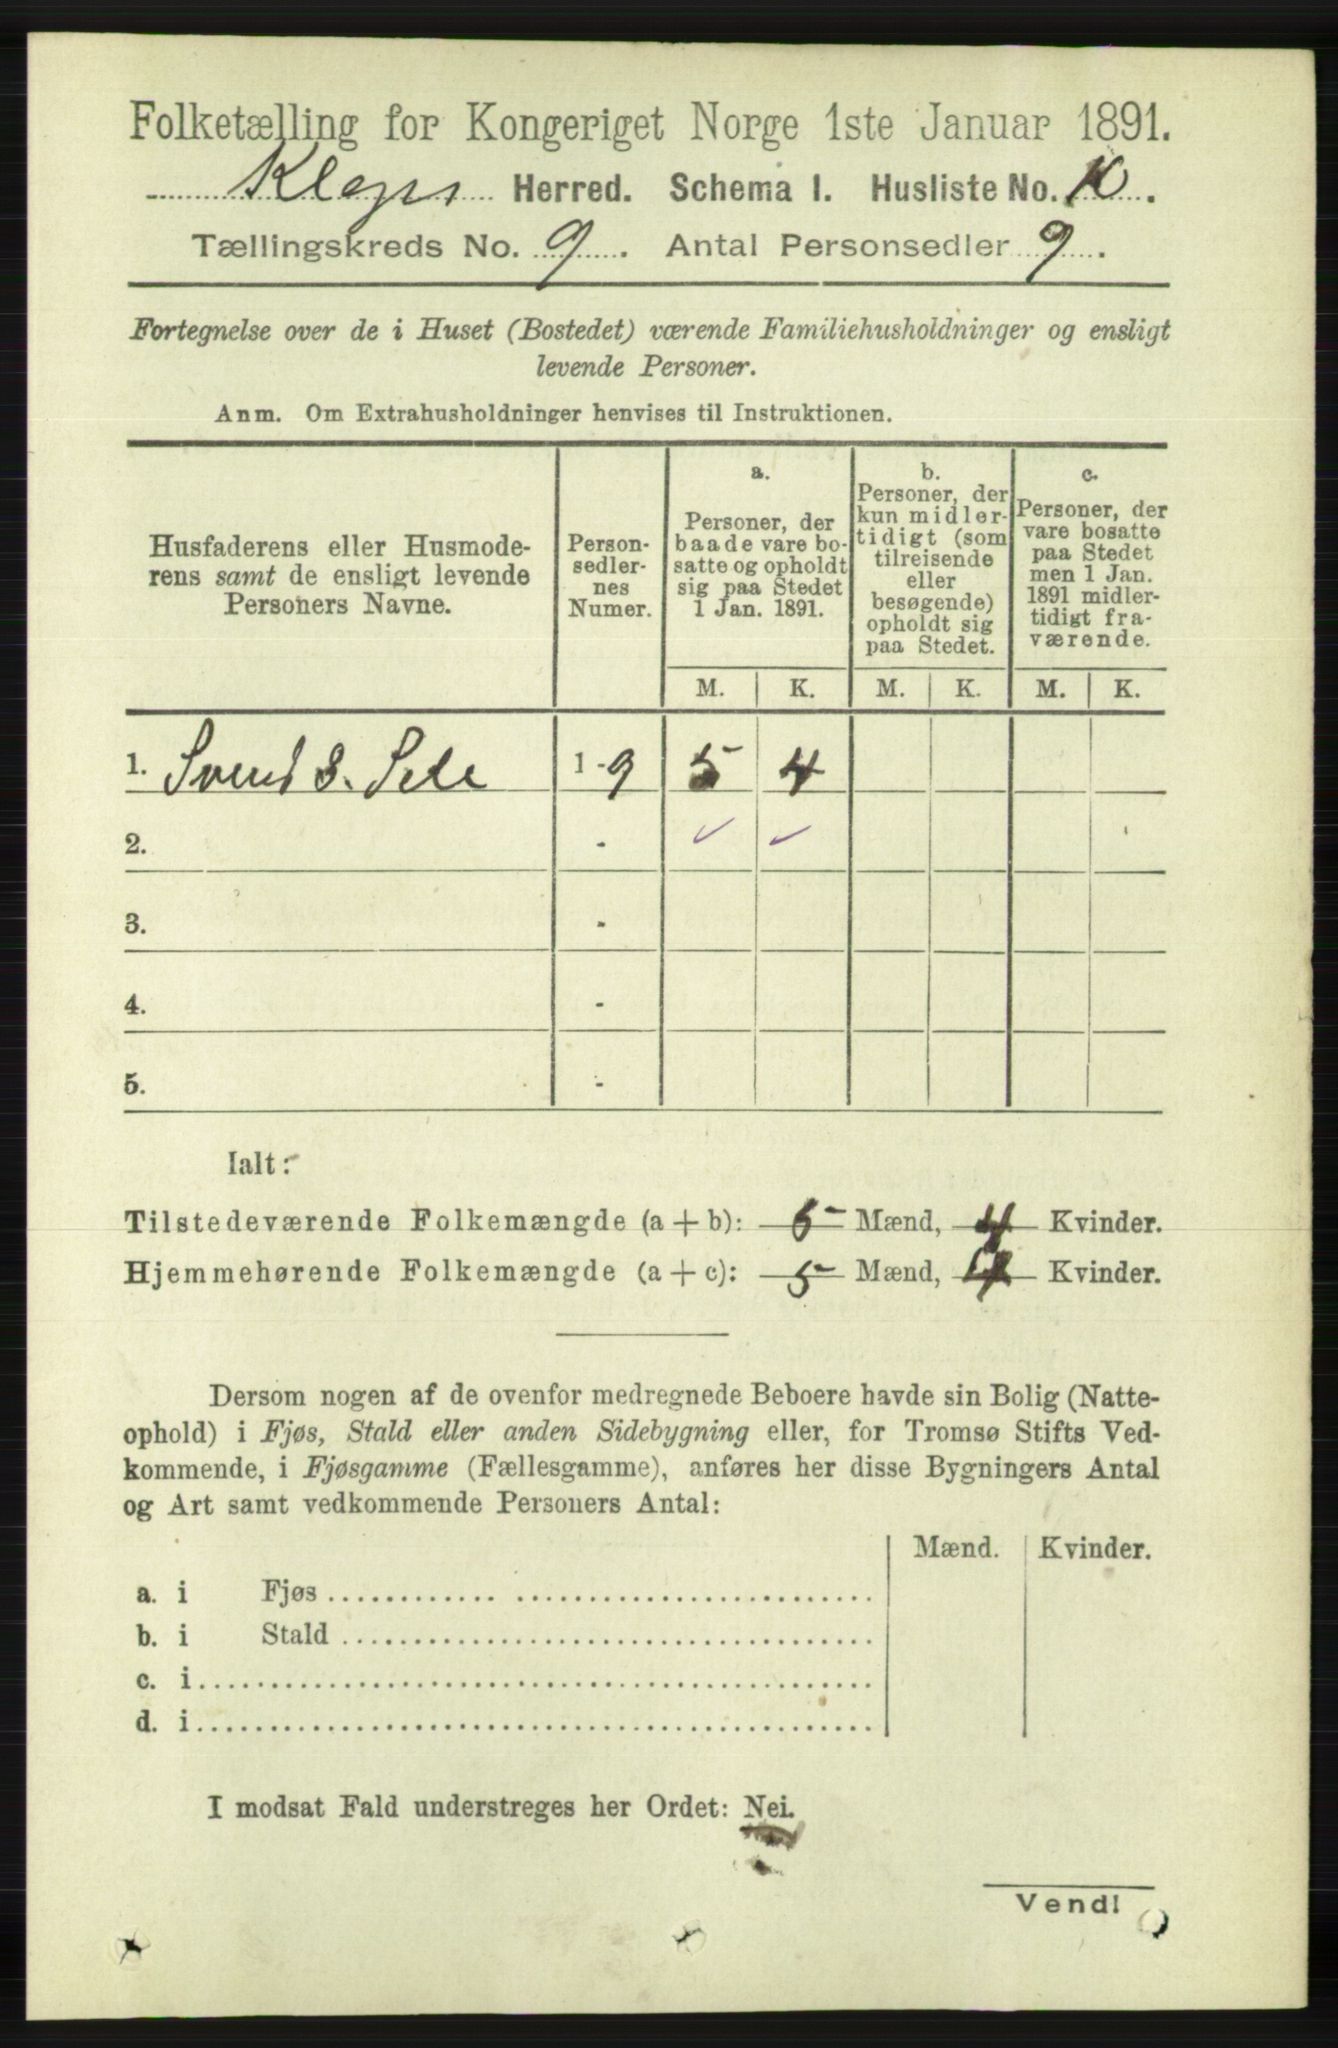 Folketælling for Kongeriget Norge 1ste Januar 1891.
Klepp Herred. Schema I. Husliste No. 10.
Tællingskreds No. 9. Antal Personsedler 9.
Fortegnelse over de i Huset (Bostedet) værende Familiehusholdninger og ensligt
levende Personer.
Anm. Om Extrahusholdninger henvises til Instruktionen.
Husfaderens eller Husmode-
rens samt de ensligt levende
Personers Navne.
Person-
sedler-
nes
Numer.
a.
Personer, der
baade vare bo-
satte og opholdt
sig paa Stedet
1 Jan. 1891.
b.
Personer, der
kun midler-
tidigt (som
tilreisende
eller
besøgende)
opholdt sig
paa Stedet.
c.
Personer, der
vare bosatte
paa Stedet
men 1 Jan.
1891 midler-
tidigt fra-
værende.
M. K. M. K. M. K.
1. Svend S. Sele 1 - 9 5 4
2. - ✓ ✓
3. -
4. -
5. -
Ialt:
Tilstedeværende Folkemængde (a + b): 5 Mænd, 4 Kvinder.
Hjemmehørende Folkemængde (a + c): 5 Mænd, 4 Kvinder.
Dersom nogen af de ovenfor medregnede Beboere havde sin Bolig (Natte-
ophold) i Fjøs, Stald eller anden Sidebygning eller, for Tromsø Stifts Ved-
kommende, i Fjøsgamme (Fællesgamme), anføres her disse Bygningers Antal
og Art samt vedkommende Personers Antal:
Mænd. Kvinder.
a. i Fjøs
b. i Stald
c. i
d. i
I modsat Fald understreges her Ordet: Nei.
Vend!